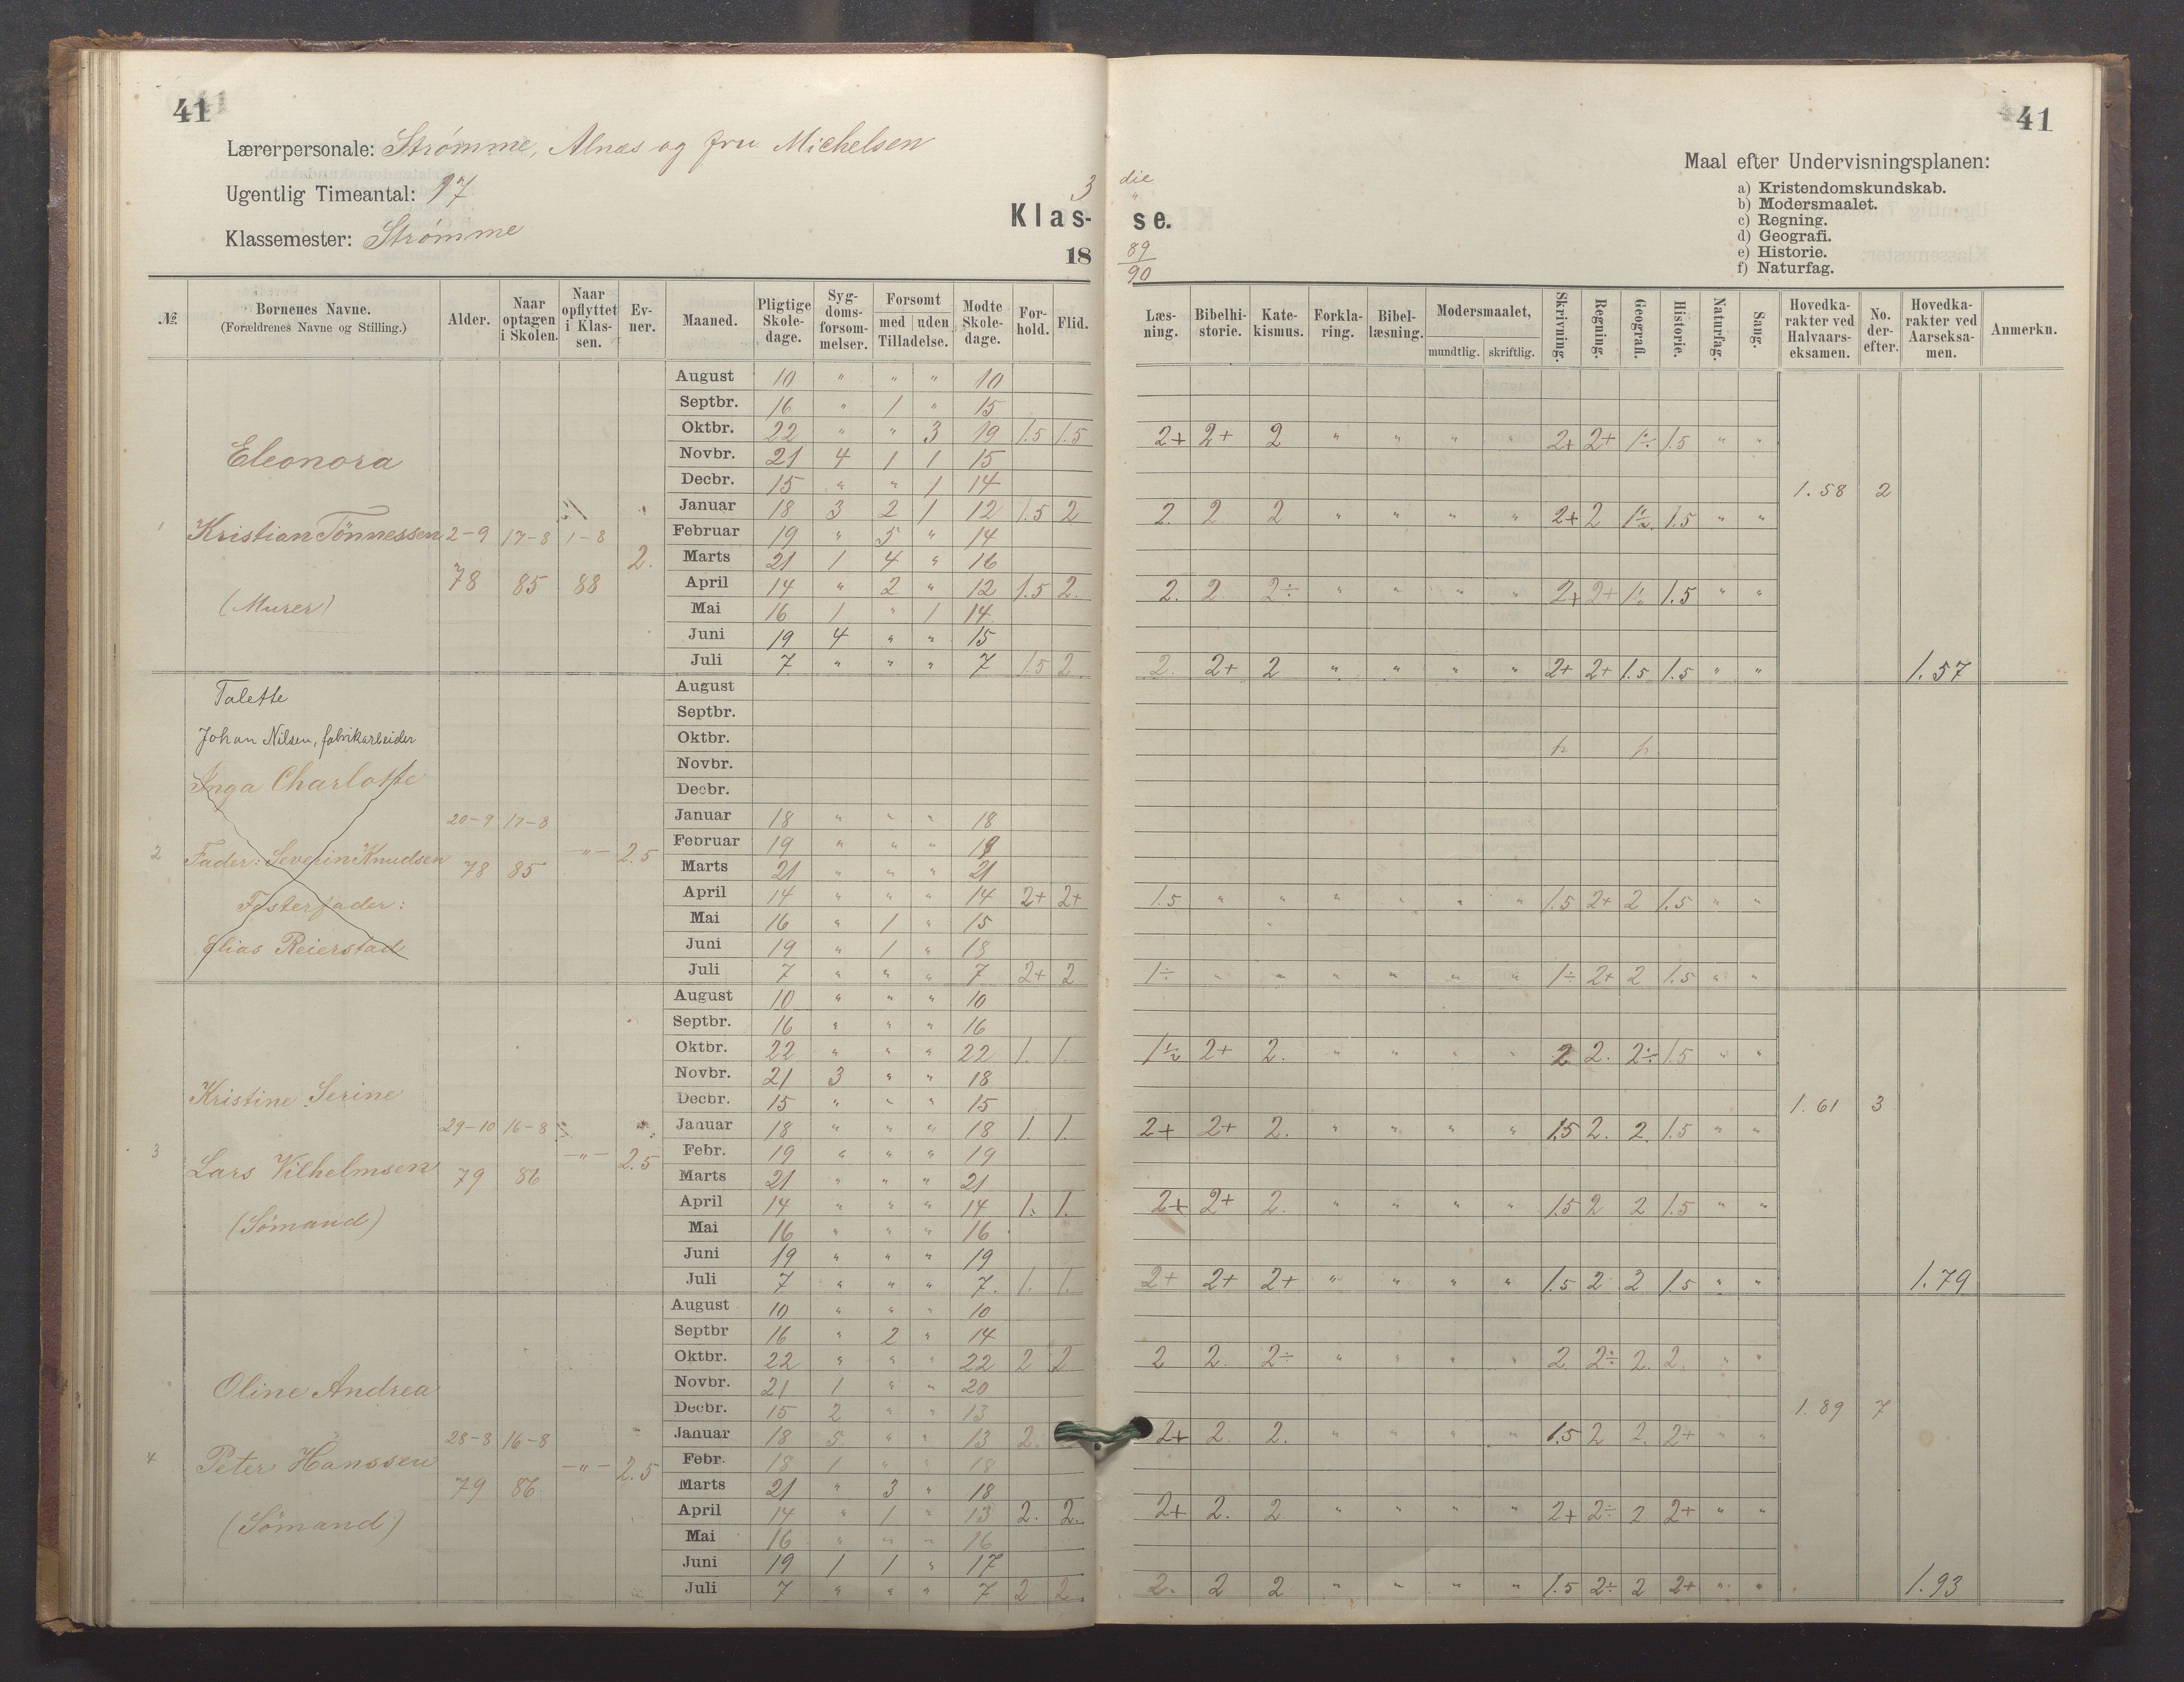 41
Lærerpersonale: Strømme, Alnæs og fru Michelsen
Ugentlig Timeantal: 17
Klassemester: Strømme
3 die
Klas- se.
18 89/90
41
Maal efter Undervisningsplanen:
a) Kristendomskundskab.
b) Modersmaalet.
c) Regning.
d) Geografi.
e) Historie.
f) Naturfag.
№ Børnenes Navne. (Forældrenes Navne og Stilling.) Alder. Naar optagen i Skolen. Naar opflyttet i Klassen. Evner. Maaned. Pligtige Skoledage. Sygdomsforsommelser. Forsømt med uden Tilladelse. Mødte Skoledage. Forhold. Flid. Læsning. Bibelhistorie. Katekismus. Forklaring. Bibellæsning. Modersmaalet, mundtlig. skriftlig. Skrivning. Regning. Geografi. Historie. Naturfag. Sang. Hovedkarakter ved Halvaarseksamen. No. derefter. Hovedkarakter ved Aarseksamen. Anmerkn.
1 Eleonora
Kristian Tönnessen 2-9 78 17-8 85 1-8 88 2.
(Murer)
August 10 " " " 10
Septbr. 16 " 1 " 15
Oktbr. 22 " " 3 19 1.5 1.5 2+ 2+ 2 " " " " 2+ 2+ 1÷ 1.5 " "
Novbr. 21 4 1 1 15
Decbr. 15 " " 1 14 1.58 2
Januar 18 3 2 1 12 1.5 2 2. 2 2 " " " " 2+ 2 1½ 1.5 " "
Februar 19 " 5 " 14
Marts 21 1 4 " 16
April 14 " 2 " 12 1.5 2. 2. 2. 2÷ " " " " 2+ 2+ 1½ 1.5 " "
Mai 16 1 " 1 14
Juni 19 4 " " 15
Juli 7 " " " 7 1.5 2 2. 2+ 2 " " " " 2+ 2+ 1.5 1.5 " " 1.57
2 Talette
Johan Nilsen, fabrikarbeider
Inga Charlotte
Fader: Severin Knudsen 20-9 78 17-8 85 -"- 2.5
Fosterfader:
Elias Reierstad
August
Septbr.
Oktbr.
Novbr.
Decbr.
Januar 18 " " " 18
Februar 19 " " " 19
Marts 21 " " " 21
April 14 " " " 14 2+ 2+ 1.5 " " " " " " 1.5 2+ 2 1.5 " "
Mai 16 " 1 " 15
Juni 19 " 1 " 18
Juli 7 " " " 7 2+ 2 1÷ " " " " " " 1÷ 2+ 2 1.5 " "
3 Kristine Serine
Lars Vilhelmsen 29-10 79 16-8 86 -"- 2.5
(Sömand)
August 10 " " " 10
Septbr. 16 " " " 16
Oktbr. 22 " " " 22 1. 1. 1½ 2+ 2. " " " " 2 2. 2÷ 1.5 " "
Novbr. 21 3 " " 18
Decbr. 15 " " " 15 1.61 3
Januar 18 " " " 18 1. 1. 2+ 2+ 2. " " " " 1.5 2. 2. 1.5 " "
Febr. 19 " " " 19
Marts 21 " " " 21
April 14 " " " 14 1. 1. 2+ 2+ 2. " " " " 1.5 2 2 1.5 " "
Mai 16 " " " 16
Juni 19 " " " 19
Juli 7 " " " 7. 1. 1. 2+ 2+ 2+ " " " " 1.5 2 2 1.5 " " 1.79
4 Oline Andrea
Peter Hanssen 28-8 79 16-8 86 -"- 2.5
(Sömand)
August 10 " " " 10
Septbr 16 " 2 " 14
Oktbr. 22 " " " 22 2 2 2 2. 2÷ " " " " 2 2÷ 2. 2. " "
Novbr. 21 1 " " 20
Decbr. 15 2 " " 13 1.89 7
Januar 18 5 " " 13 2. 2+ 2. 2. " " " " 1.5 2 2. 2+ " "
Febr. 18 1 " " 18
Marts 21 " 3 " 18
April 14 " 1 " 13 2. 2. 2+ 2. 2. " " " " 2+ 2÷ 2 2+ " "
Mai 16 " " " 16
Juni 19 1 1 " 17
Juli 7 " " " 7 2 2 2. 2 2 " " " " 1.5 2÷ 2 2+ " " 1.93